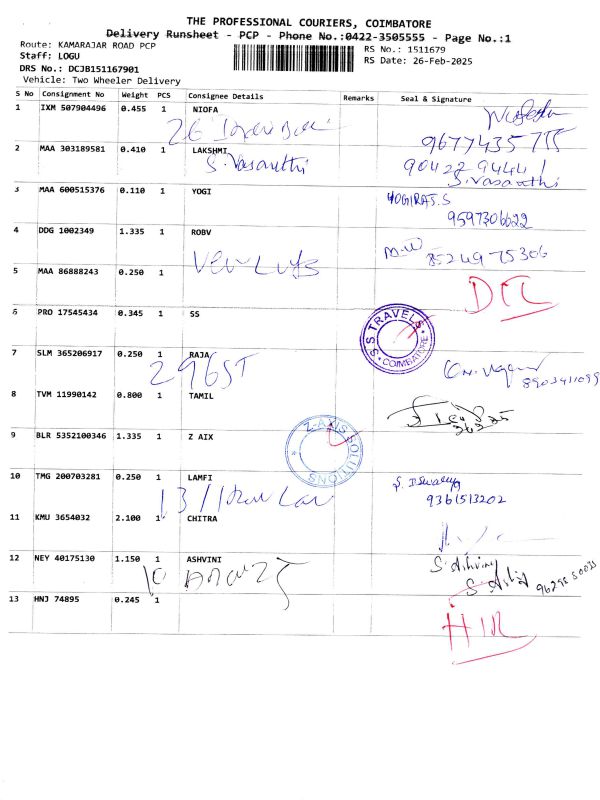 THE PROFESSIONAL COURIERS, COIMBATORE
Delivery Runsheet - PCP - Phone No.:0422-3505555 - Page No.:1
Route: KAMARAJAR ROAD PCP
RS No.: 1511679
Staff: LOGU
RS Date: 26-Feb-2025
DRS No.: DCJB151167901
Vehicle: Two Wheeler Delivery
S No Consignment No Weight PCS Consignee Details Remarks Seal & Signature
1 IXM 507904496 0.455 1 NIOFA
26
2 MAA 303189581 0.410 1 LAKSHMI 90422 94441
S. Vasanthi S. Vasanthi
3 MAA 600515376 0.110 1 YOGI YOGIRAJ.S
9597306622
4 DDG 1002349 1.335 1 ROBV 85249 75306
5 MAA 86888243 0.250 1
6 PRO 17545434 0.345 1 SS S S TRAVELS COIMBATORE
7 SLM 365206917 0.250 1 RAJA
296ST 8903411099
8 TVM 11990142 0.800 1 TAMIL
9 BLR 5352100346 1.335 1 Z AIX Z-AXIS SOLUTIONS
10 TMG 200703281 0.250 1 LAMFI
9361513202
11 KMU 3654032 2.100 1 CHITRA
12 NEY 40175130 1.150 1 ASHVINI S. Ashvini
13 HNJ 74895 0.245 1